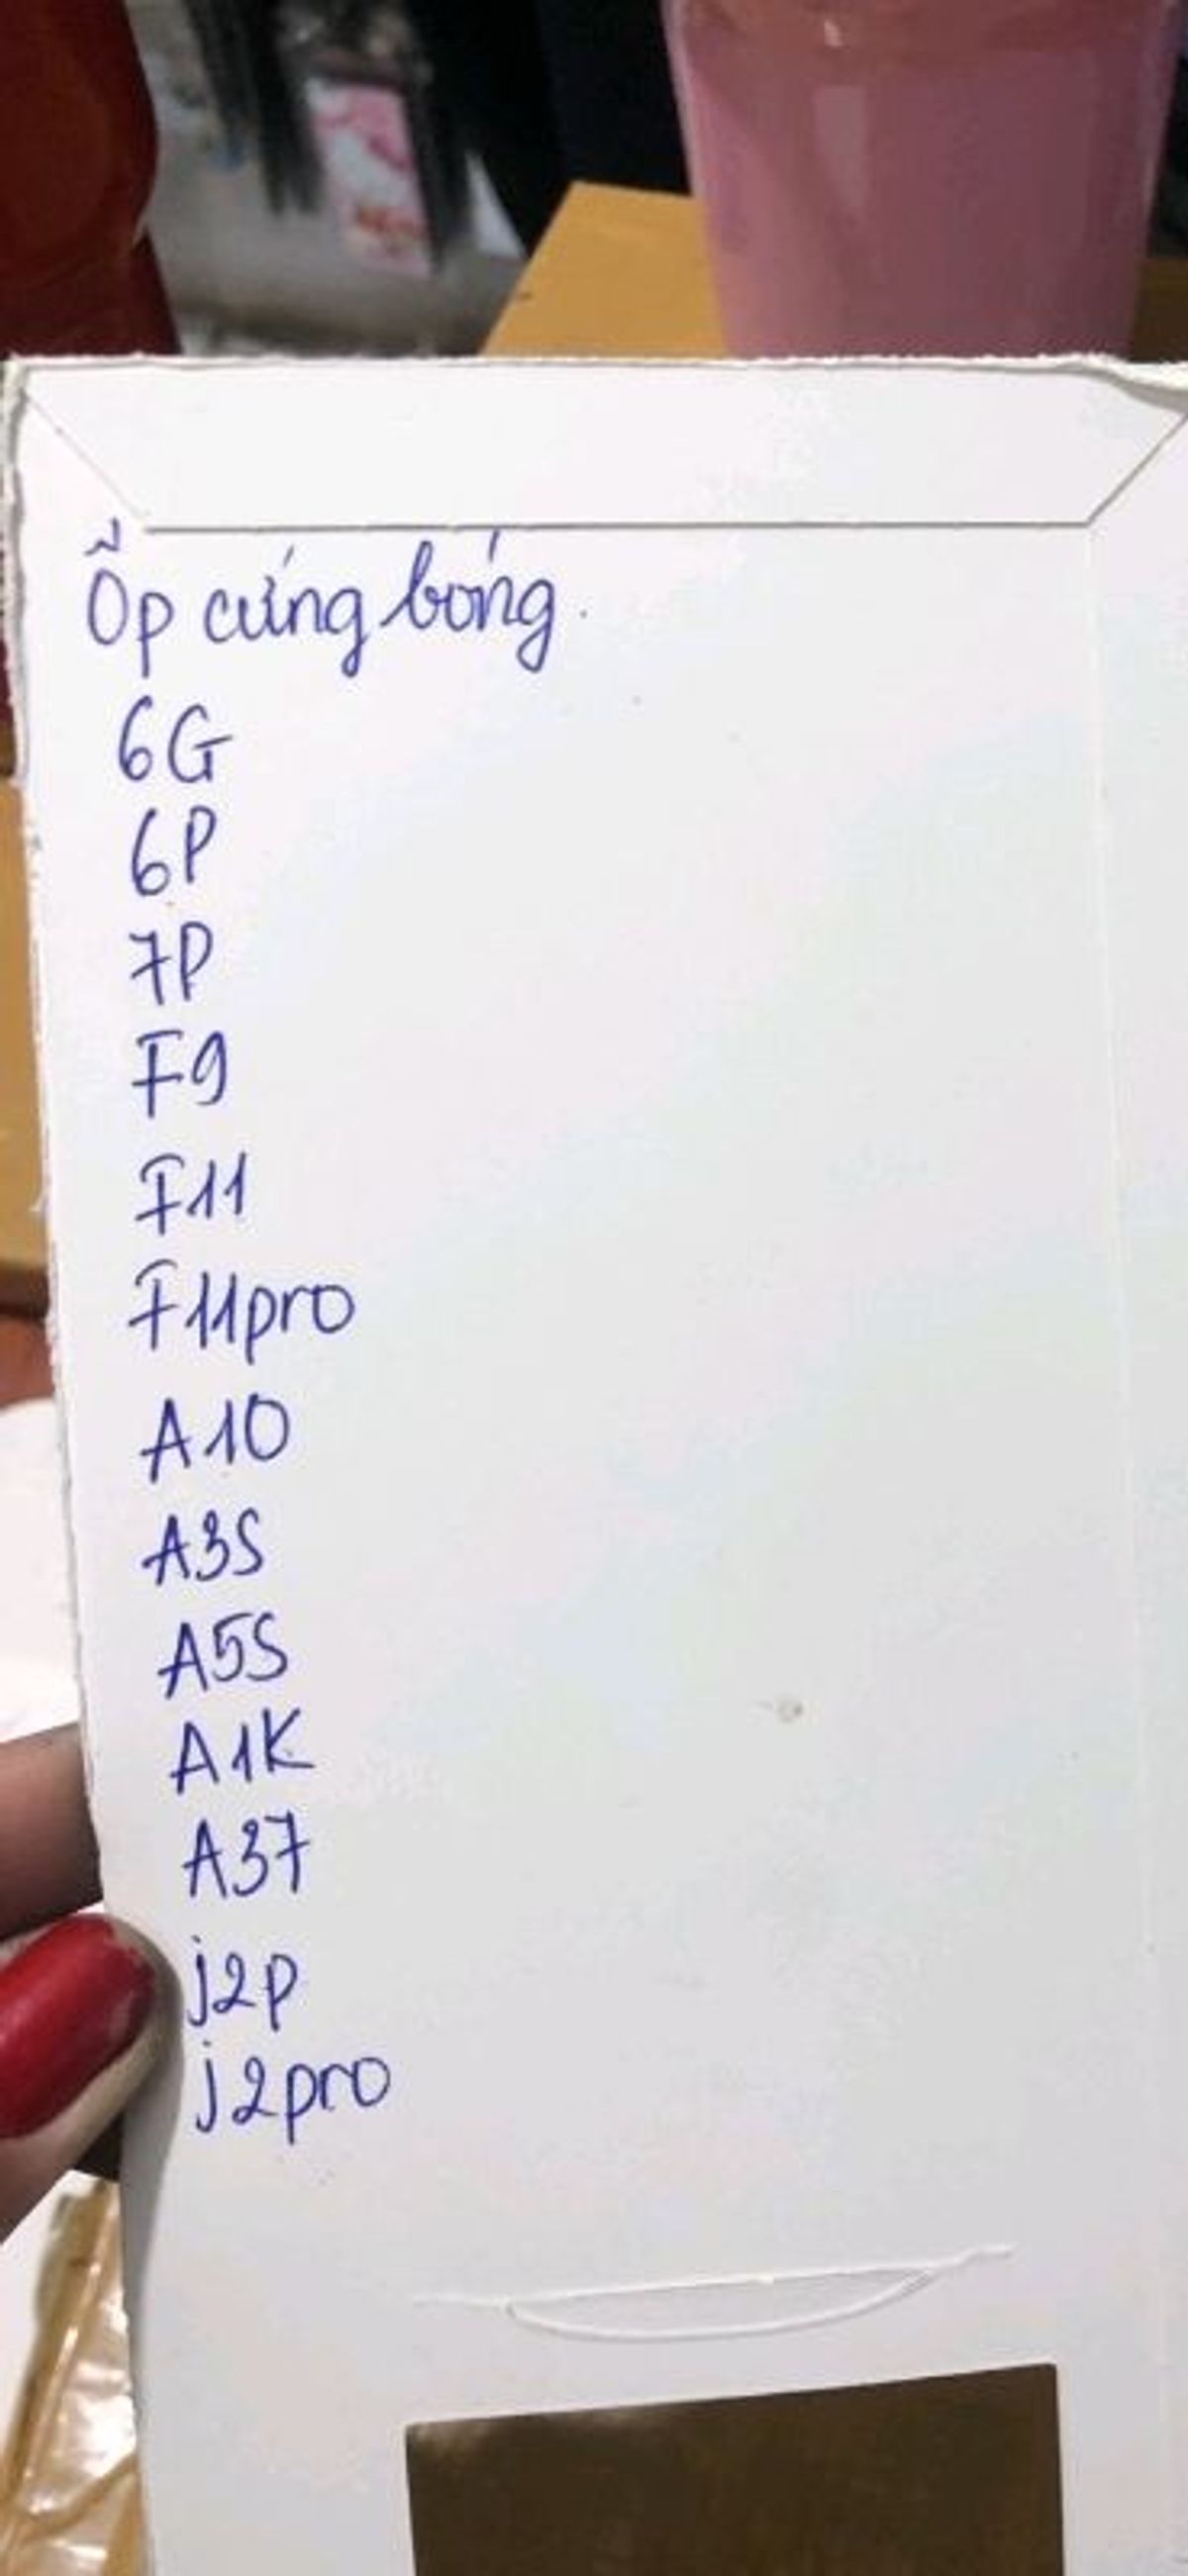 Ốp cứng bóng.
6G
6P
7P
F9
F11
F11pro
A10
A3S
A5S
A1K
A37
j2p
j2pro